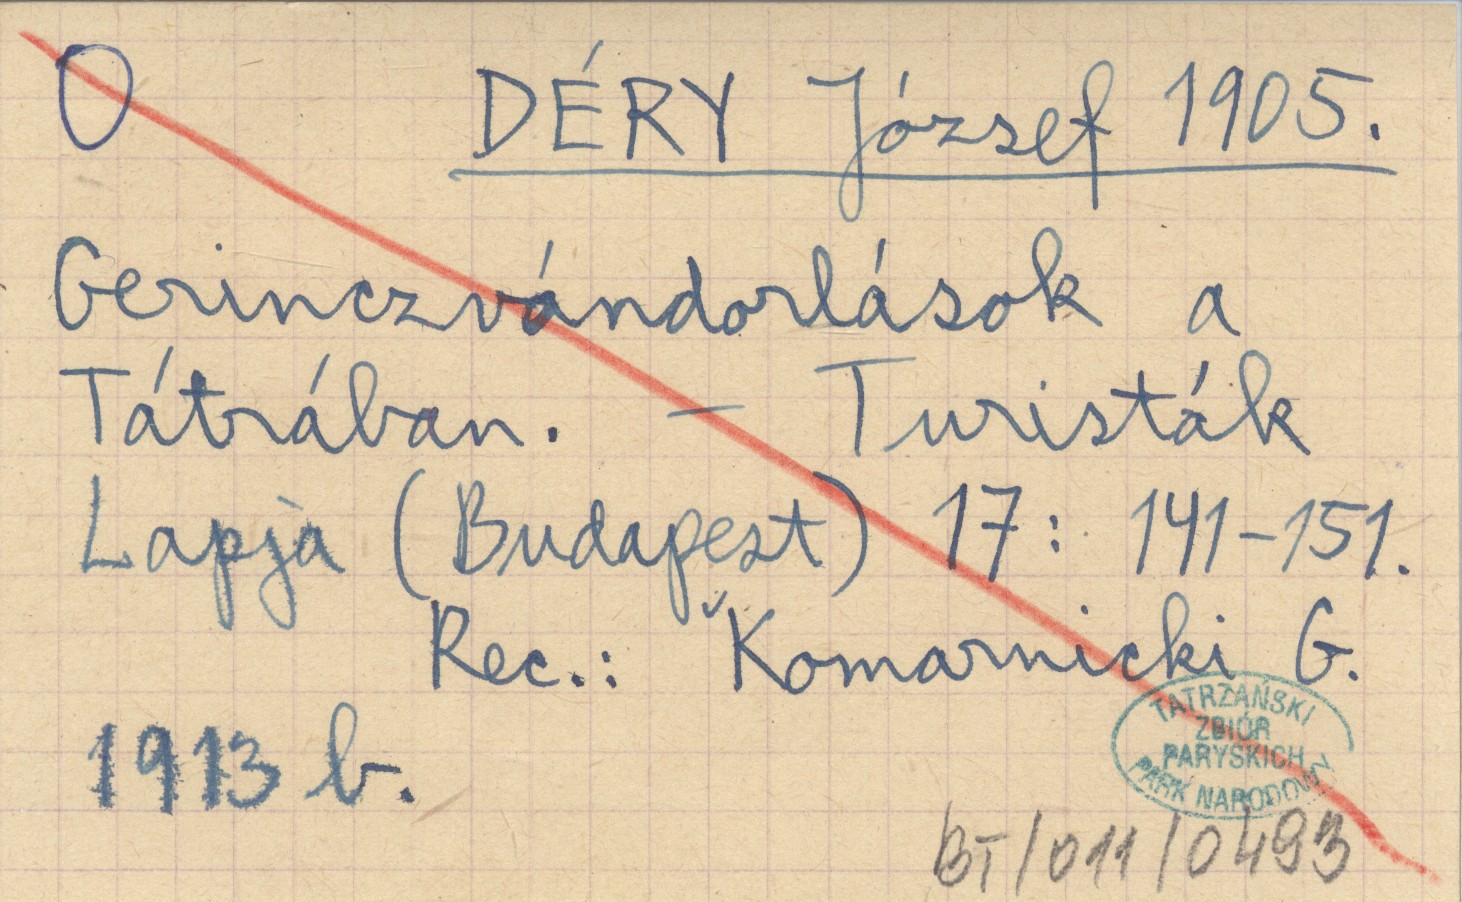 O DÉRY József 1905.
Gerinczvándorlások a
Tátrában. – Turisták
Lapja (Budapest) 17: 141-151.
Rec.: Komarnicki G.
1913 b.
TATRZAŃSKI
ZBIÓR
PARYSKICH
PARK NARODOWY
BT/011/0493